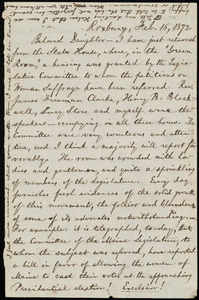 Roxbury, Feb. 15, 1872.
Beloved Daughter: I have just returned
from the State House, where, in the "Green
Room," a hearing was granted by the Legis-
lative Committee to whom the petitions on
Woman Suffrage have been referred. Rev.
James Freeman Clarke, Henry B. Black-
well, Lucy Stone, and myself were the
speakers—occupying an all three hours. The
Committee was very courteous and atten-
tive, and I think a majority will report fa-
vorably. The room was crowded with la-
dies and gentlemen, and quite a sprinkling
of members of the Legislature. Every day
furnishes fresh evidences of the solid growth
of this movement, the follies and blunders
of some of its advocates notwithstanding.
For example: it is telegraphed to-day, that
the Committee of the Maine Legislature, to
whom the subject was referred, have reported
a bill in favor of allowing the women of
Maine to cast their votes at the approaching
Presidential election! Excelsior!